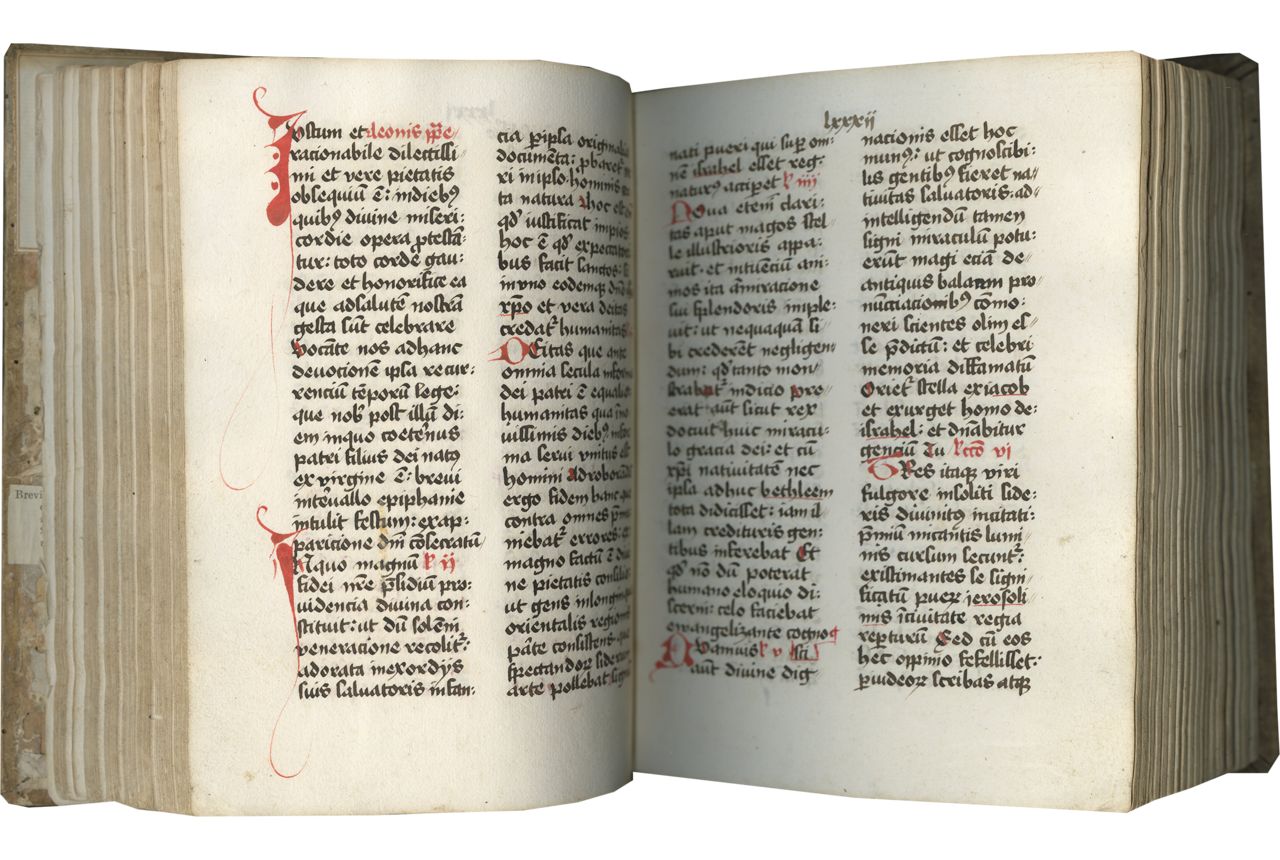 Iustum et leonis ppe
racionabile dilectissi
mi et vere pietatis
obsequiũ ẽ: in dieb9
quib9 divine miseri:
cordie opera ptestã
tur: toto corde gau:
dere et honorifice ea
que ad salutem nostrã
gesta sũt celebrare
vocãte nos ad hanc
devocionem ipsa recur:
renciũ tẽporũ lege:
que nob post illũ di:
em in quo coetern9
patri filius dei nat9
ex virgine ẽ: brevi
intervallo epiphanie
intulit festum: ex ap:
paricione dñi cõsecratũ
In quo magnũ l ij
fidei nre psidiũ pro:
videncia divina con:
stituit: ut dũ solẽni
veneracione recolit:
adorata in exordijs
suis salvatoris infan:
cia p ipsa original
documẽta: pbaret
ri in ipso hominis
ta natura Hoc est
qd iustificat impios
hoc ẽ qd ex peccator
bus facit sanctos:
in uno eodemq dno
xpo et vera deitas
credat humanitas
Deitas que ante
omnia secula in forma
dei patri ẽ equal
humanitas qua
vissimis dieb9
ma servi unitus est
homini Ad roborandã
ergo fidem hanc que
contra omnes p
niebat errores:
magno factũ ẽ
ne pietatis consilio
ut gens in longinqua
orientalis regionis
parte consistens que
spectandor siderum
arte pollebat signũ
lxxxij
nati pueri qui sup om:
nẽ israhel esset reg:
natur9 acciperet l iiij
Nova etem clari:
tas aput magos stel
le illustrioris appa:
ruit et intuenciũ ani:
mos ita amiracione
sui splendoris imple:
vit: ut nequaquã si:
bi crederent negligen
dum: qd tanto mon
strabat indicio Pre
erat aut sicut rex
docuit huic miracu:
lo gracia dei: et cũ
xpi nativitatẽ nec
ipsa adhuc bethleem
tota didicisset: iam il
lam credituris gen:
tibus inferebat Et
qd nõ dũ poterat
humano eloquio di:
scerni: celo faciebat
ewangelizante cogno
Qvamuis l v sci
aut divine dig
nacionis esset hoc
mun9: ut cognoscibi:
lis gentib9 fieret na
tivitas salvatoris: ad
intelligendũ tamen
signi miraculũ potu:
erũt magi eciã de
antiquis balaam pro
nũciacionib9 cõmo:
neri scientes olim es
se pdictũ: et celebri
memoria diffamatũ
Oriet stella ex iacob
et exurget homo de:
israhel: et dñabitur
genciũ Tu lcõ vi
Tres itaq viri
fulgore insoliti side:
ris divinit9 incitati:
pmiũ micantis lumi
nis cursum secunt:
existimantes se signi
ficatũ puer jerosoli
mis ĩ civitate regia
repturũ Sed cũ eos
hec oppinio fefellisset:
p iudeor scribas atq
Brevi